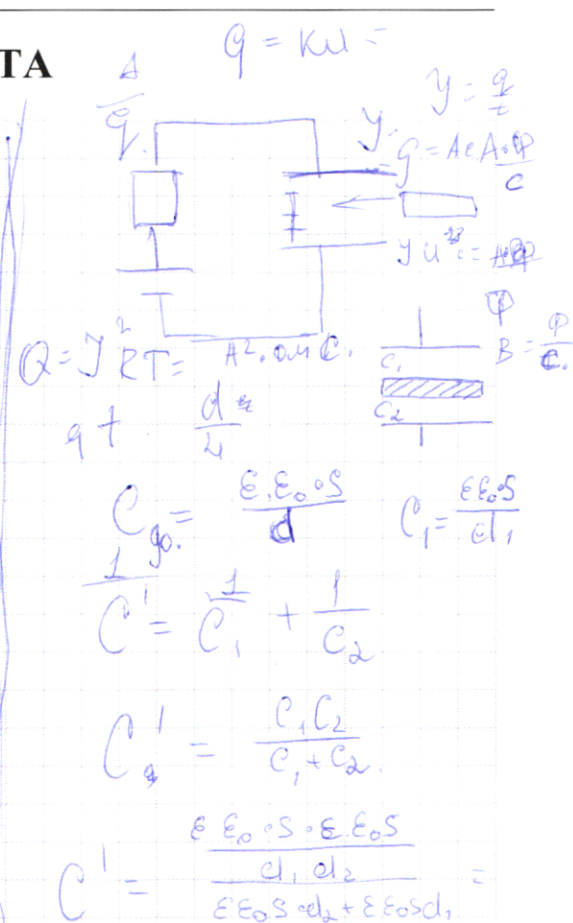 ТА
q = кu =
A
q.
У = q
t
У-
q = Ac A·Ф
C
Q = У² RT = A². ом с.
B = Ф
C.
C₁
C₂
q t
d
4
C до. = ε.ε₀·S / d
C₁ = εε₀·S / d₁
1 / C' = 1 / C₁ + 1 / C₂
C' = C₁C₂ / C₁ + C₂.
C' = ε ε₀·S·ε.ε₀S / d₁ d₂ =
εε₀S·d₂ + εε₀Sd₁